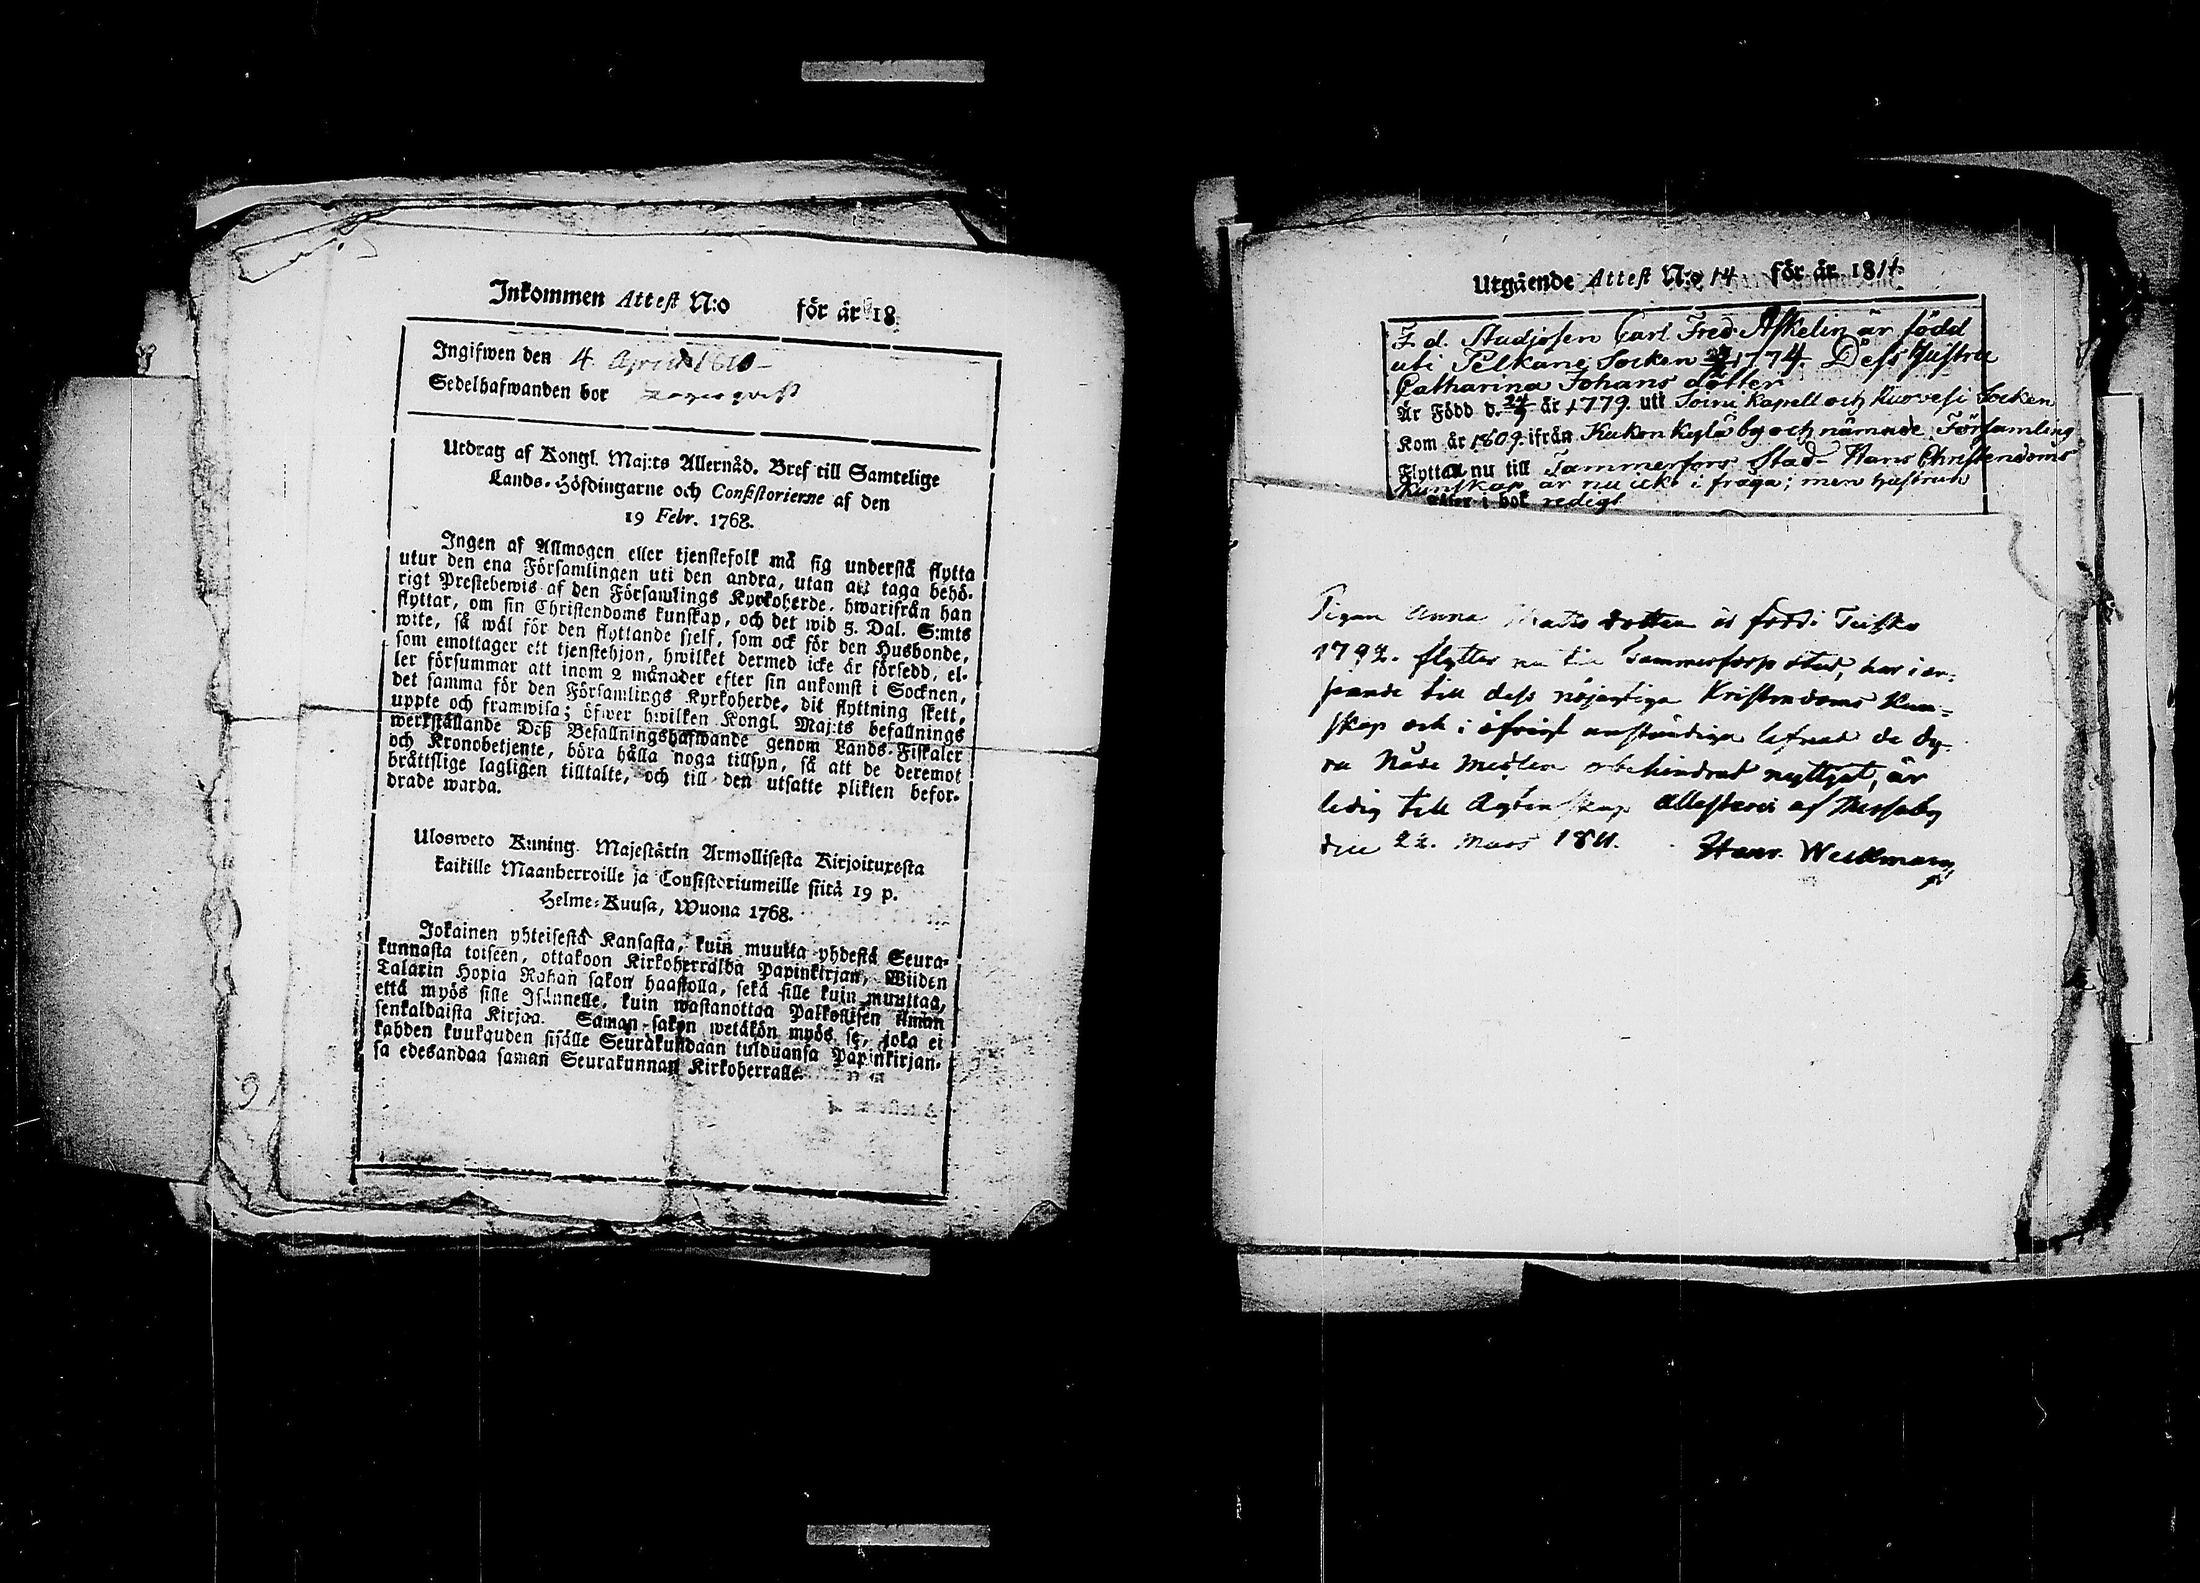 Inkommen Attest N:o för år 18
Ingifwen den 4 April 1810
Sedelhafwanden bor
Utdrag af Kongl. Maj:ts Allernåd. Bref till Samtelige
Lands-Höfdingarne och Consistorierne af den
19 Febr. 1768.
Ingen af Allmogen eller tjenstefolk må sig understå flytta
utur den ena Församlingen uti den andra, utan att taga behö-
rigt Prestebewis af den Församlings Kyrkoherde, hwarifrån han
flyttar, om sin Christendoms kunskap, och det wid 5. Dal. S:mts
wite, så wäl för den flyttande sjelf, som ock för den Husbonde,
som emottager ett tjenstehjon, hwilket dermed icke är försedd, el-
ler försummar att inom 2 månader efter sin ankomst i Socknen,
det samma för den Församlings Kyrkoherde, dit flyttning skett,
uppte och framwisa; öfwer hwilken Kongl. Maj:ts befallnings
werkställande Deß Befallningshafwande genom Lands-Fiskaler
och Kronobetjente, böra hålla noga tillsyn, så att de deremot
bråttslige lagligen tilltalte, och till den utsatte plikten befor-
drade warda.
Ulosweto Kuning. Majestätin Armollisesta Kirjoituxesta
kaikille Maanherroille ja Consistoriumeille siitä 19 p.
Helme-Kuusa, Wuona 1768.
Jokainen yhteisestä Kansasta, kuin muutta yhdestä Seura-
kunnasta toiseen, ottakoon Kirkoherralda Papinkirjan, Wiiden
Talarin Hopia Rahan sakon haastolla, sekä sille kuin muuttaa,
että myös sille Isännelle, kuin wastanottaa Palkollisen ilman
senkaldaista Kirjaa. Saman sakon wetäkön myös se, joka ei
kahden kuukauden sisälle Seurakundaan tulduansa Papinkirjan-
sa edesandaa saman Seurakunnan Kirkoherralle.
Utgående Attest N:o 14 för år 1811.
F. d. Studiosen Carl Fred. Askelin är född
uti Pelkäne Socken 1774. Dess Hustru
Catharina Johans dotter
Är Född d. 24 år 1779. uti Soini Kapell och Kuovesi Socken
Kom år 1809. ifrån Kukonkylä by och nämnde Församling
Flyttar nu till Tammerfors Stad. Hans Christendoms
Kunskap är nu icke i fråga; men hustrun
i bok redigt
Pigan Anna Mats dotter är född i Teisko
1792. flyttar nu till Tammerfors stad, har i an-
seende till dess nöjagtiga Kristendoms Kun-
skap och i öfrigt anständiga lefnad de dy-
ra Nåde Medlen obehindrad nyttjat, är
ledig till Ägtenskap Attesteras af Messuby
den 22. Mars 1811. Henr. Weckman